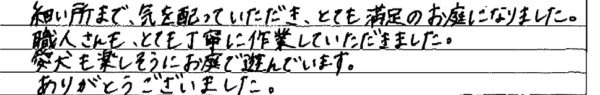 細い所まで、気を配っていただき、とても満足のお庭になりました。
職人さんも、とても丁寧に作業していただきました。
愛犬も楽しそうにお庭で遊んでいます。
ありがとうございました。